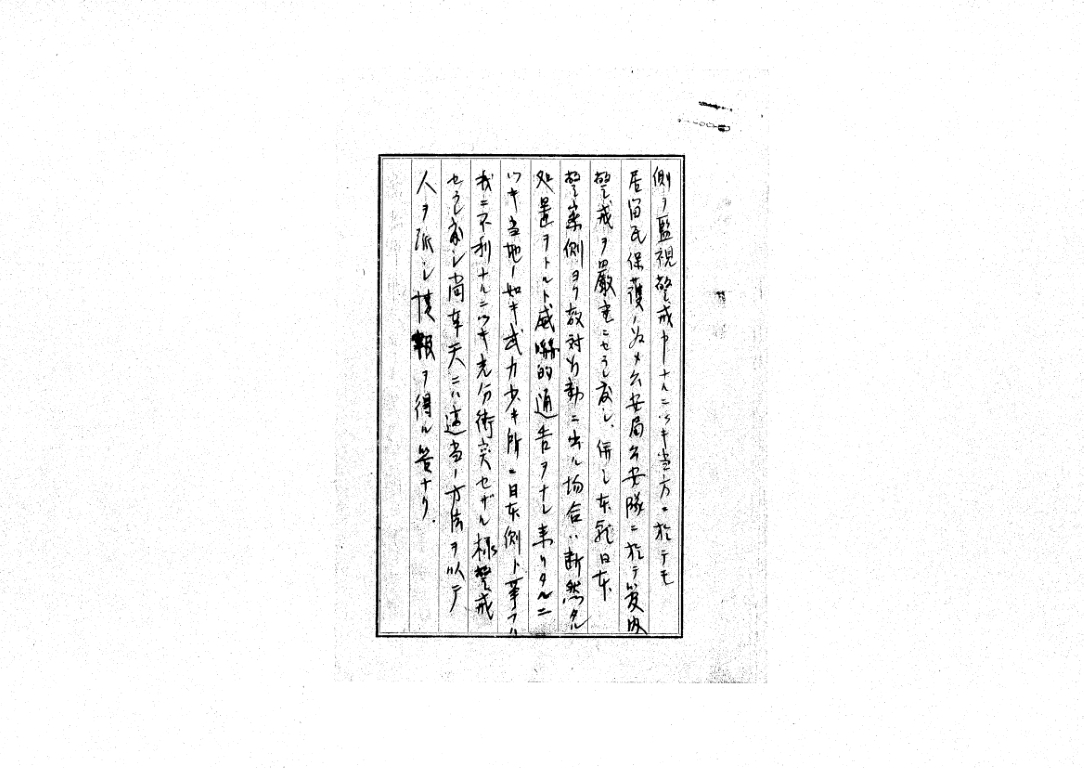 側ヲ監視警戒中ナルニツキ当方ニ於テモ
居留民保護ノ為メ公安局公安隊ニ於テ管内
警戒ヲ厳重ニセラレ度シ、併シ本龍日本
警察側ヨリ敵対行動ニ出ル場合ハ断然タル
処置ヲトルト威嚇的通告ヲナシ来リタルニ
ツキ当地ノ如キ武力少キ所ニ日本側ト争フハ
我ニ不利ナルニツキ充分衝突セザル様警戒
セラレ度シ尚奉天ニハ適当ノ方法ヲ以テ
人ヲ派シ情報ヲ得ル筈ナリ.